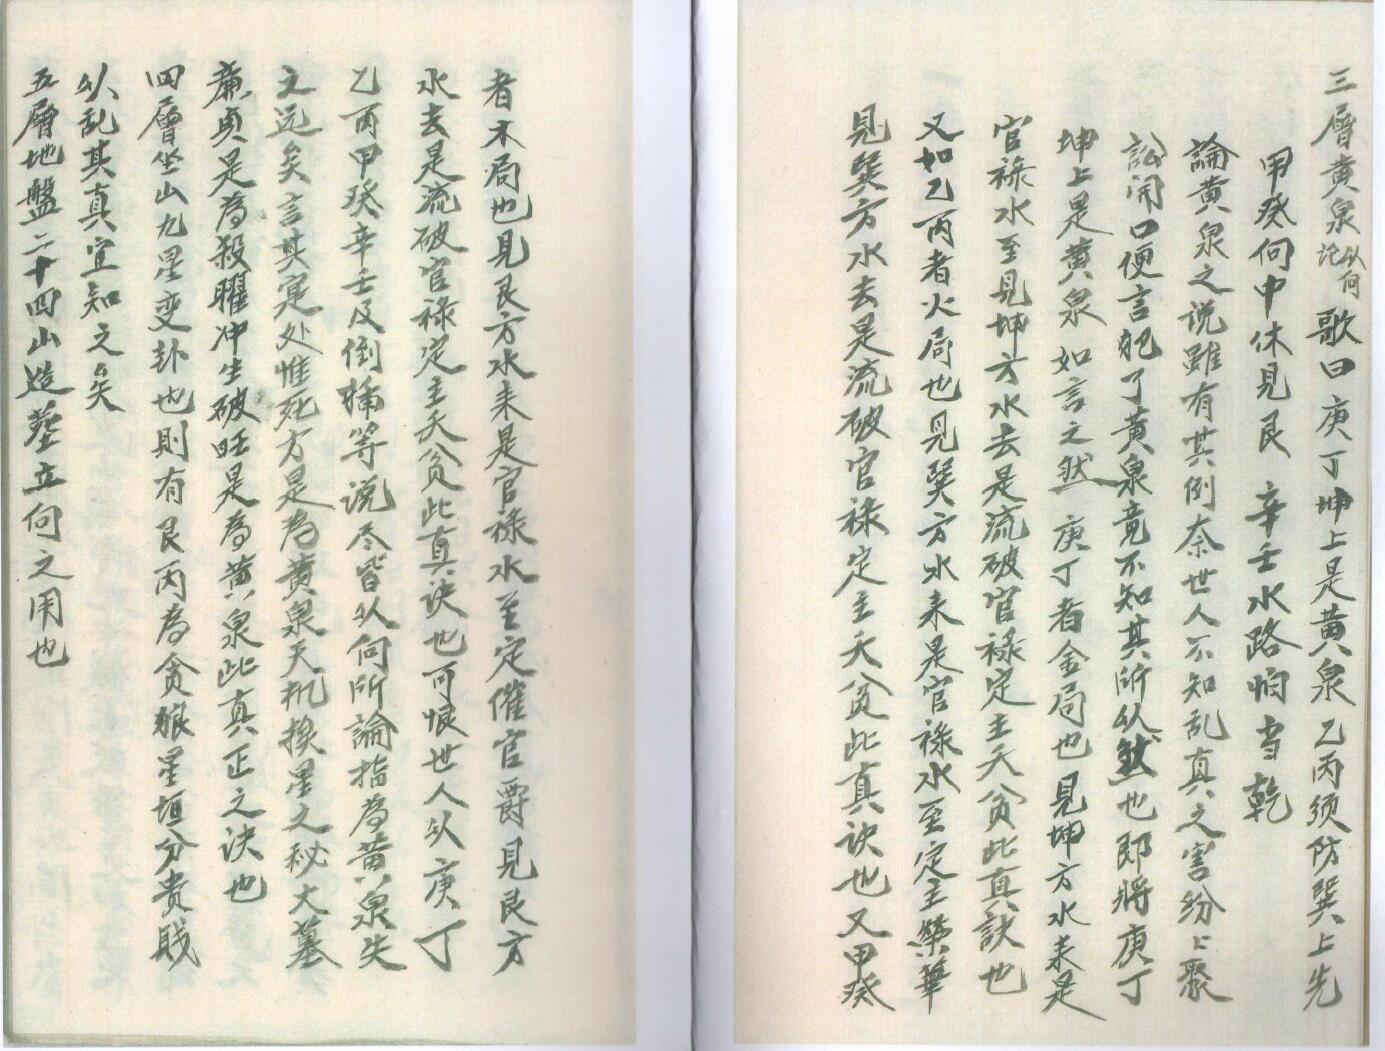 三層黄泉 以向论 歌曰庚丁坤上是黄泉乙丙须防巽上先
甲癸向中休見艮 辛壬水路怕当乾
論黄泉之说雖有其倒奈世人不知乱真之害纷〻聚
訟開口便言犯了黄泉竟不知其所以然也即將庚丁
坤上是黄泉如言之然 庚丁者金局也見坤方水来是
官禄水至見坤方水去是流破官禄定主夭贫此真訣也
又如乙丙者火局也見巽方水来是官禄水至定主榮華
見巽方水去是流破官禄定主夭贫此真诀也又甲癸
者木局也見艮方水来是官禄水至定催官爵見艮方
水去是流破官禄定主夭贫此真诀也可恨世人以庚丁
乙丙甲癸辛壬及倒插等说尽皆以向所論指為黄泉失
之远矣言其寔处惟死方是為黄泉天机换星之秘大墓
廉貞是為殺曜冲生破旺是為黄泉此真正之决也
四層坐山九星变卦也則有艮丙為贪狼星垣分贵贱
以乱其真宜知之矣
五層地盤二十四山造塟立向之用也